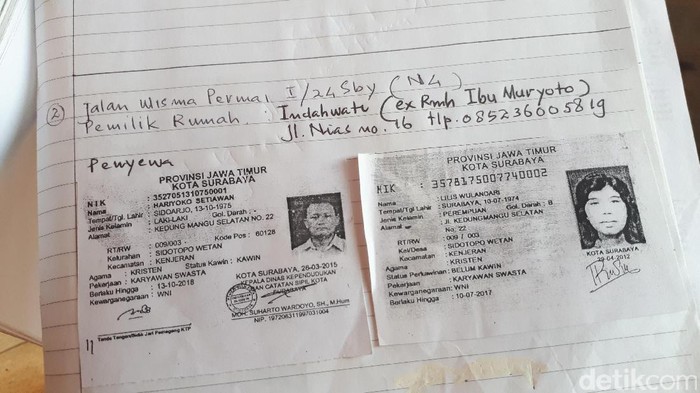 ② Jalan Wisma Permai I/24 Sby (N4)
Pemilik Rumah : Indahwati (ex Rmh Ibu Muryoto)
Jl. Nias no. 16 tlp. 085236005819
Penyewa
PROVINSI JAWA TIMUR
KOTA SURABAYA
NIK : 3527051310750001
Nama : HARIYOKO SETIAWAN
Tempat/Tgl Lahir : SIDOARJO, 13-10-1975
Jenis Kelamin : LAKI-LAKI Gol. Darah : -
Alamat : KEDUNG MANGU SELATAN NO. 22
RT/RW : 009/003 Kode Pos : 60128
Kelurahan : SIDOTOPO WETAN
Kecamatan : KENJERAN
Agama : KRISTEN Status Kawin : KAWIN
Pekerjaan : KARYAWAN SWASTA
Berlaku Hingga : 13-10-2018
Kewarganegaraan : WNI
KOTA SURABAYA, 26-03-2015
KEPALA DINAS KEPENDUDUKAN
DAN CATATAN SIPIL KOTA
SURABAYA
MOH. SUHARTO WARDOYO, SH., M.Hum
NIP. 197206311997031004
Tanda Tangan/Sidik Jari Pemegang KTP
PROVINSI JAWA TIMUR
KOTA SURABAYA
NIK : 3578175007740002
Nama : LILIS WULANDARI
Tempat/Tgl Lahir : SURABAYA, 10-07-1974
Jenis Kelamin : PEREMPUAN Gol. Darah : B
Alamat : JL KEDUNGMANGU SELATAN
No. 22
RT/RW : 009 / 003
Kel/Desa : SIDOTOPO WETAN
Kecamatan : KENJERAN
Agama : KRISTEN
Status Perkawinan : BELUM KAWIN
Pekerjaan : KARYAWAN SWASTA
Kewarganegaraan : WNI
Berlaku Hingga : 10-07-2017
KOTA SURABAYA
detikcom